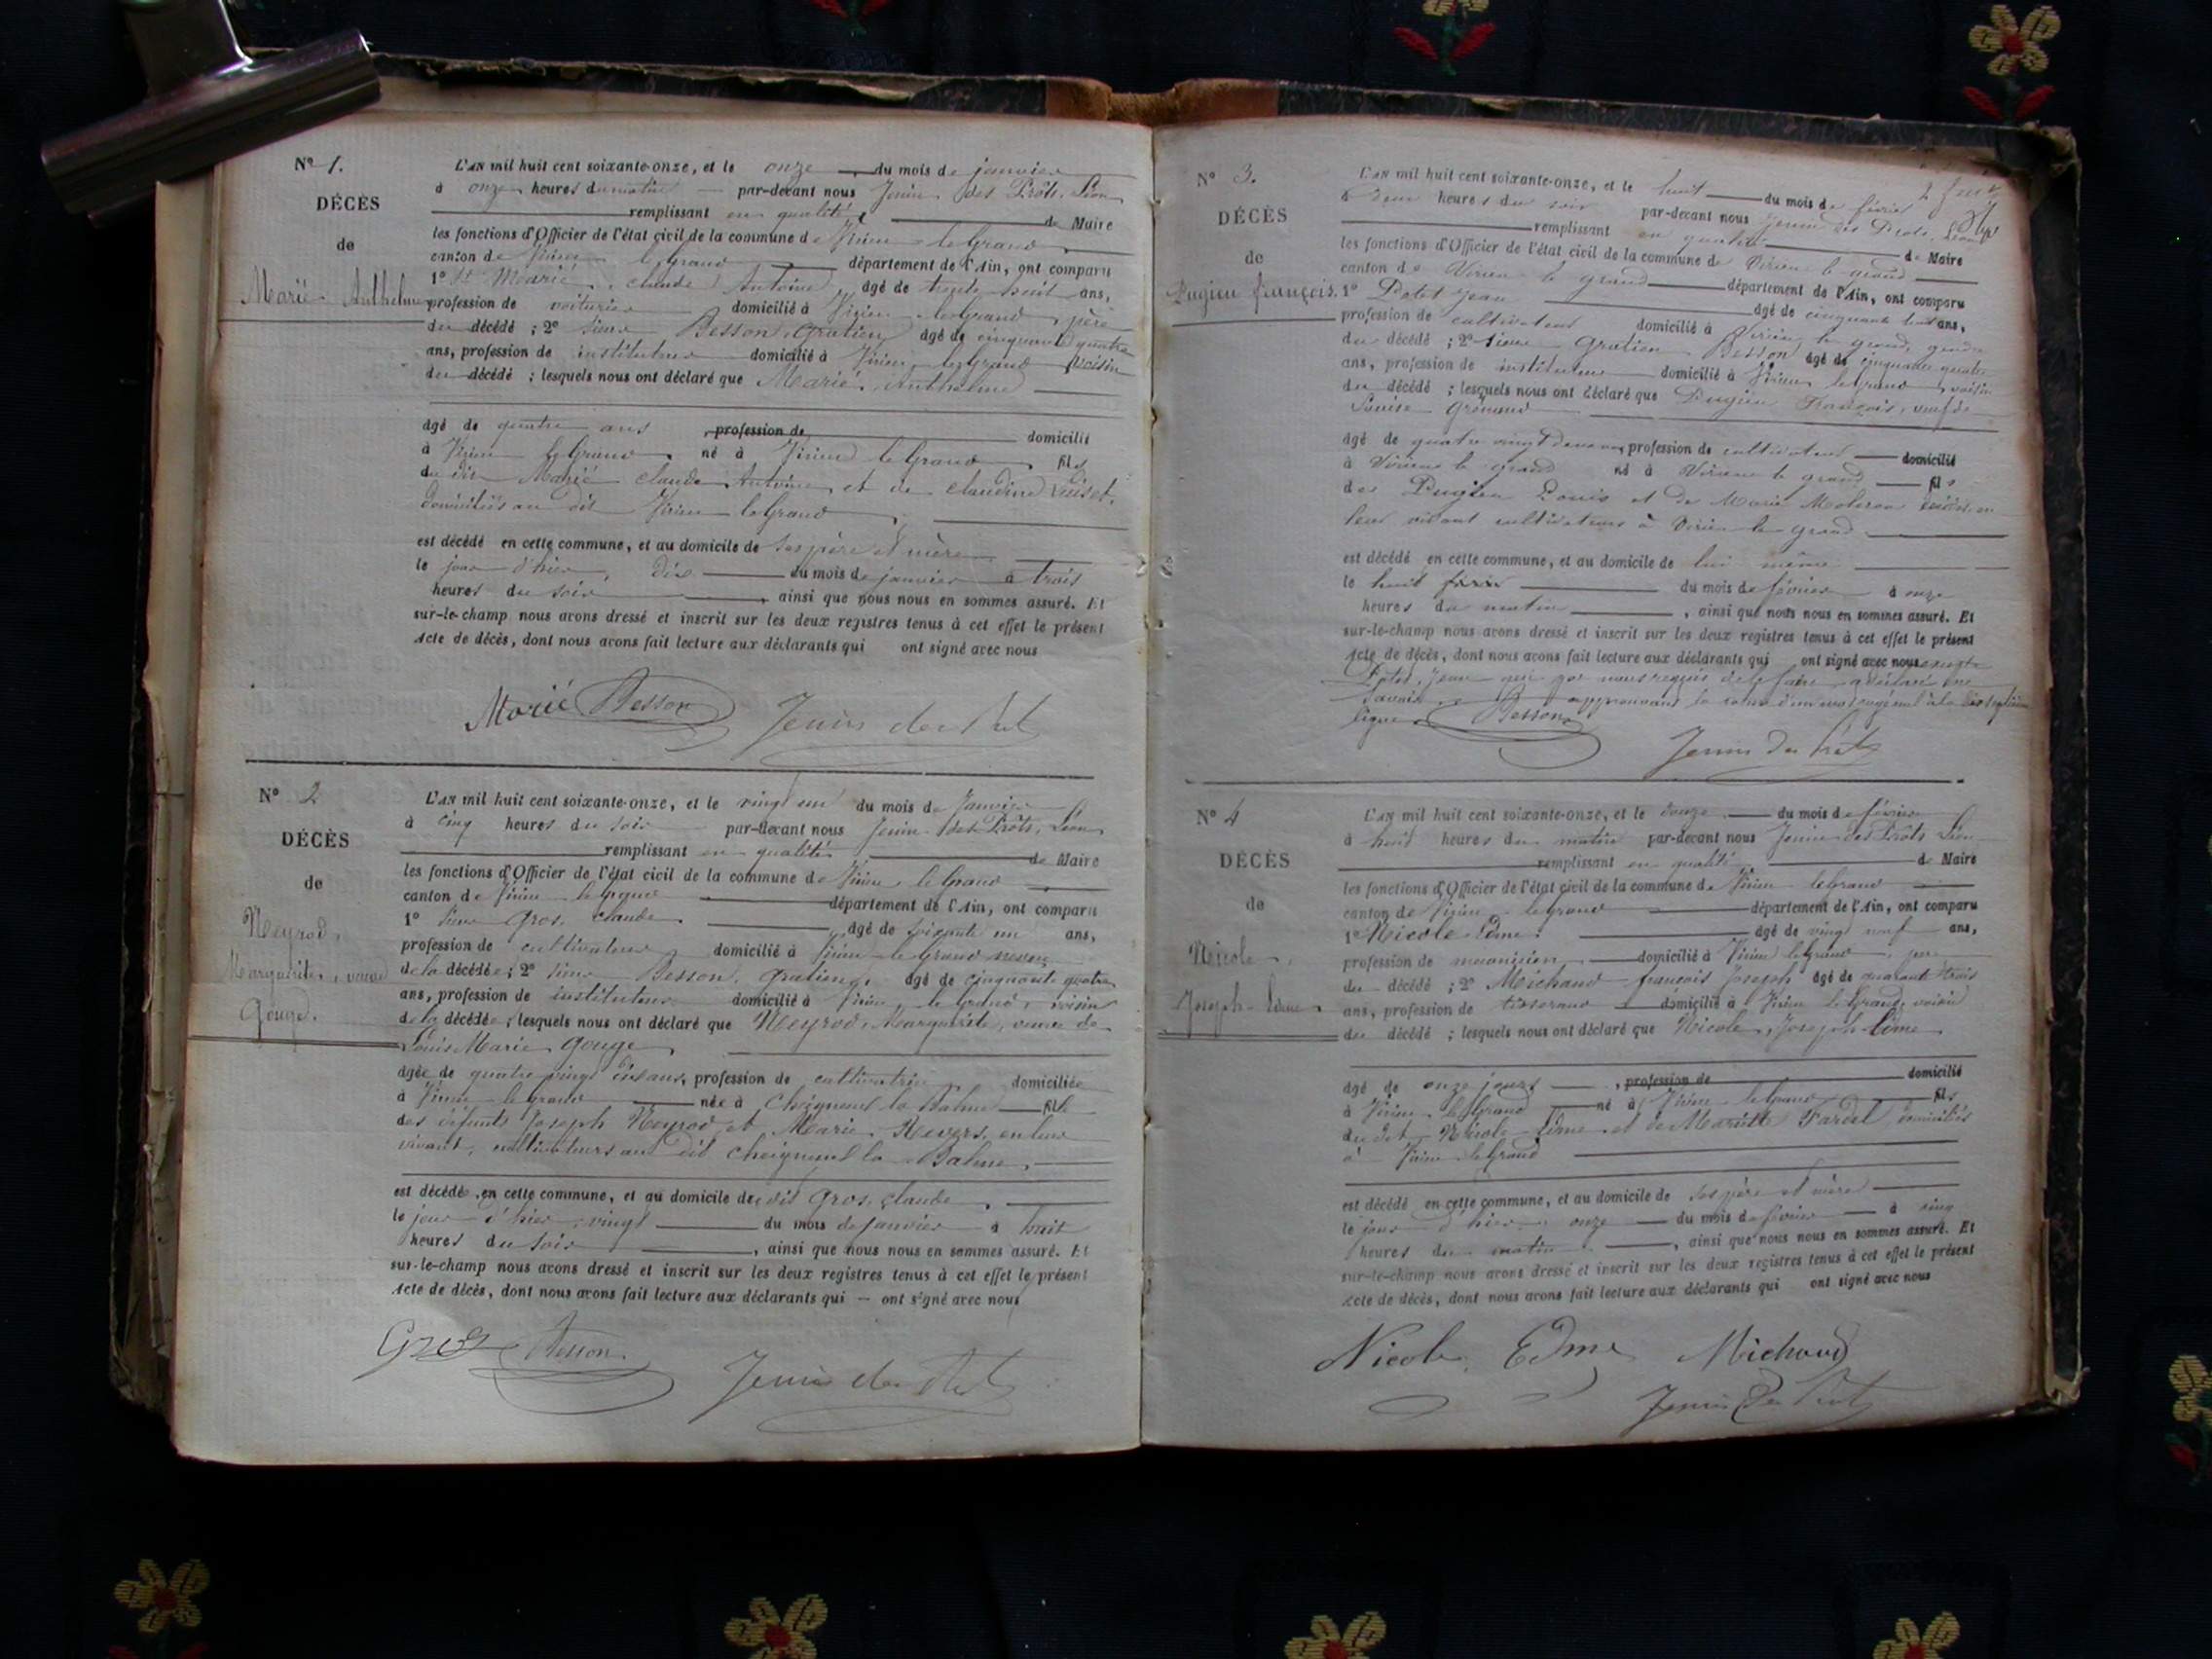 N° 1.
DÉCÈS
de
Marié Anthelme
L'AN mil huit cent soixante-onze, et le onze du mois de janvier
à onze heures du matin par-devant nous Jenin des Prôts, Léon
remplissant en qualité de Maire
les fonctions d'Officier de l'état civil de la commune de Virieu le Grand
canton de Virieu le Grand département de l'Ain, ont comparu
1° Sr Marié, claude Antoine, âgé de trente huit ans,
profession de voiturier domicilié à Virieu le Grand, père
du décédé ; 2° Sieur Besson, Gratien, âgé de cinquante quatre
ans, profession de instituteur domicilié à Virieu le Grand voisin
du décédé ; lesquels nous ont déclaré que Marié, Anthelme
âgé de quatre ans , profession de domicilié
à Virieu le Grand né à Virieu le Grand fils
du dit Marié claude Antoine et de claudine
domiciliés au dit Virieu le Grand
est décédé en cette commune, et au domicile de ses père et mère
le jour d'hier, dix du mois de janvier à trois
heures du soir , ainsi que nous nous en sommes assuré. Et
sur-le-champ nous avons dressé et inscrit sur les deux registres tenus à cet effet le présent
Acte de décès, dont nous avons fait lecture aux déclarants qui ont signé avec nous
Marié Besson Jenin des Prôts
N° 2
DÉCÈS
de
Neyrod,
Marguerite, veuve
Gouge.
L'AN mil huit cent soixante-onze, et le vingt un du mois de Janvier
à cinq heures du soir par-devant nous Jenin des Prôts, Léon
remplissant en qualité de Maire
les fonctions d'Officier de l'état civil de la commune de Virieu le Grand
canton de Virieu le Grand département de l'Ain, ont comparu
1° Sieur Gros, claude âgé de soixante un ans,
profession de cultivateur domicilié à Virieu le Grand neveu
de la décédée ; 2° Sieur Besson, Gratien, âgé de cinquante quatre
ans, profession de instituteur domicilié à Virieu le Grand, voisin
de la décédée ; lesquels nous ont déclaré que Neyrod, Marguerite, veuve de
Louis Marie Gouge
âgée de quatre vingt dix ans, profession de cultivatrice domiciliée
à Virieu le grand née à Cheignieu la Balme fille
des défunts Joseph Neyrod et Marie en leur
vivant, cultivateurs au dit Cheignieu la Balme
est décédée en cette commune, et au domicile du dit Gros, claude
le jour d'hier, vingt du mois de janvier à huit
heures du soir , ainsi que nous nous en sommes assuré. Et
sur-le-champ nous avons dressé et inscrit sur les deux registres tenus à cet effet le présent
Acte de décès, dont nous avons fait lecture aux déclarants qui – ont signé avec nous
Gros Besson Jenin des Prôts
N° 3.
DÉCÈS
de
Pugieu françois.
L'AN mil huit cent soixante-onze, et le huit du mois de février
à deux heures du soir par-devant nous Jenin des Prôts, Léon
remplissant en qualité de Maire
les fonctions d'Officier de l'état civil de la commune de Virieu le grand
canton de Virieu le grand département de l'Ain, ont comparu
1° Jean âgé de cinquante huit ans,
profession de cultivateur domicilié à Virieu le grand, gendre
du décédé ; 2° Sieur Gratien Besson âgé de cinquante quatre
ans, profession de instituteur domicilié à Virieu le Grand, voisin
du décédé ; lesquels nous ont déclaré que Pugieu François, veuf de
Louise
âgé de quatre vingt ans, profession de cultivateur domicilié
à Virieu le grand né à Virieu le grand fils
des Pugieu Louis et de Marie décédés en
leur vivant cultivateurs à Virieu le grand
est décédé en cette commune, et au domicile de lui même
le huit du mois de février à onze
heures du matin , ainsi que nous nous en sommes assuré. Et
sur-le-champ nous avons dressé et inscrit sur les deux registres tenus à cet effet le présent
Acte de décès, dont nous avons fait lecture aux déclarants qui ont signé avec nous excepté
Jean qui par nous requis de le faire a déclaré ne
savoir approuvant la rature d'un mot rayé nul à la dix septième
ligne Besson Jenin des Prôts
N° 4
DÉCÈS
de
Nicole,
Joseph-Edme
L'AN mil huit cent soixante-onze, et le douze du mois de février
à huit heures du matin par-devant nous Jenin des Prôts Léon
remplissant en qualité de Maire
les fonctions d'Officier de l'état civil de la commune de Virieu le Grand
canton de Virieu le grand département de l'Ain, ont comparu
1° Nicole Edme âgé de vingt neuf ans,
profession de mécanicien domicilié à Virieu le Grand, père
du décédé ; 2° Michaud françois Joseph âgé de quarante trois
ans, profession de tisserand domicilié à Virieu le Grand, voisin
du décédé ; lesquels nous ont déclaré que Nicole, Joseph-Edme
âgé de onze jours , profession de domicilié
à Virieu le Grand né à Virieu le Grand fils
du dit Nicole Edme et de Mariette Fardel domiciliés
à Virieu le Grand
est décédé en cette commune, et au domicile de ses père et mère
le jour d'hier, onze du mois de février à cinq
heures du matin , ainsi que nous nous en sommes assuré. Et
sur-le-champ nous avons dressé et inscrit sur les deux registres tenus à cet effet le présent
Acte de décès, dont nous avons fait lecture aux déclarants qui ont signé avec nous
Nicole Edme Michaud
Jenin des Prôts